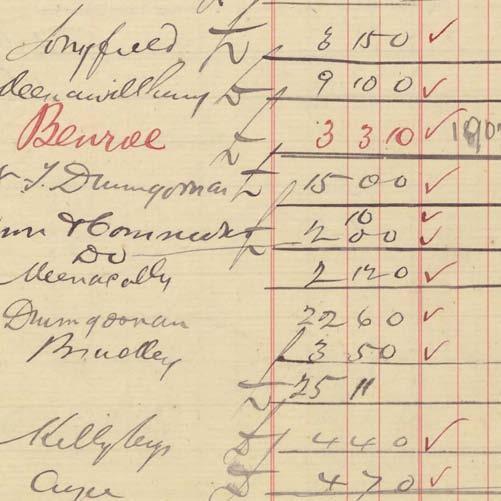 Longfield £ 8 15 0 ✓
£ 9 10 0 ✓
Benroe £ 3 3 10 ✓ 190
Drumgoonan £ 15 0 0 ✓
10 ✓
£ 2 0 0 ✓
Do
Meenacally 2 12 0 ✓
Drumgoonan 22 6 0 ✓
Bradley £ 3 5 0 ✓
£ 25 11
Killybegs £ 4 4 0 ✓
£ 4 7 0 ✓